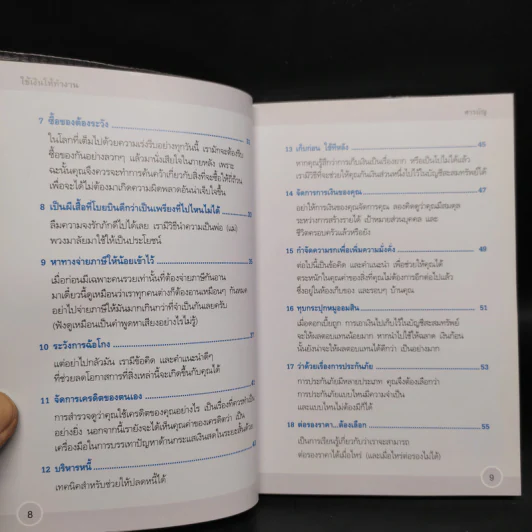 ใช้เงินให้ทำงาน
7 ซื้อของต้องระวัง
ในโลกที่เต็มไปด้วยความเร่งรีบอย่างทุกวันนี้ เรามักจะต้องรีบ
ซื้อของกันอย่างลวกๆ แล้วมานั่งเสียใจในภายหลัง เพราะ
ฉะนั้นคุณจึงควรจะทำการค้นคว้าเกี่ยวกับสิ่งที่จะซื้อให้ถี่ถ้วน
เพื่อจะได้ไม่ต้องมาเกิดความผิดพลาดอันน่าเจ็บใจขึ้น
8 เป็นผีเสื้อที่โบยบินดีกว่าเป็นเพรียงที่ไปไหนไม่ได้
ลืมความจงรักภักดีไปได้เลย เรามีวิธีนำความเป็นพ่อ (แม่)
พวงมาลัยมาใช้ให้เป็นประโยชน์
9 หาทางจ่ายภาษีให้น้อยเข้าไว้
เมื่อก่อนมีเฉพาะคนรวยเท่านั้นที่ต้องจ่ายภาษีกันอาน
มาเดี๋ยวนี้ดูเหมือนว่าเราทุกคนต่างก็ต้องอานเหมือนๆ กันหมด
อย่าไปจ่ายภาษีให้มันมากเกินกว่าที่จำเป็นเลยครับ
(ฟังดูเหมือนเป็นคำพูดหาเสียงอย่างไรไม่รู้)
10 ระวังการฉ้อโกง
แต่อย่าไปกลัวมัน เรามีข้อคิด และคำแนะนำดีๆ
ที่ช่วยลดโอกาสการที่สิ่งเหล่านี้จะเกิดขึ้นกับคุณได้
11 จัดการเครดิตของตนเอง
การสำรวจดูว่าคุณใช้เครดิตของคุณอย่างไร เป็นเรื่องที่ควรทำเป็น
อย่างยิ่ง นอกจากนี้เรายังจะได้ให้คุณค่าของเครดิตว่า เป็น
เครื่องมือในการบรรเทาปัญหาด้านกระแสเงินสดในระยะสั้นด้วย
12 บริหารหนี้
เทคนิคสำหรับช่วยให้ปลดหนี้ได้
8
สารบัญ
13 เก็บก่อน ใช้ทีหลัง 45
หากคุณรู้สึกว่าการเก็บเงินเป็นเรื่องยาก หรือเป็นไปไม่ได้แล้ว
เรามีวิธีที่จะช่วยให้คุณกันเงินส่วนหนึ่งไปไว้ในบัญชีสะสมทรัพย์ได้
14 จัดการการเงินของคุณ 47
อย่าให้การเงินของคุณจัดการคุณ ลองคิดดูว่าคุณมีสมดุล
ระหว่างการสร้างรายได้ เป้าหมายส่วนบุคคล และ
ชีวิตครอบครัวแล้วหรือยัง
15 กำจัดความรกเพื่อเพิ่มความมั่งคั่ง 49
ต่อไปนี้เป็นข้อคิด และคำแนะนำ เพื่อช่วยให้คุณได้
ตระหนักในคุณค่าของสิ่งที่คุณไม่ต้องการอีกต่อไปแล้ว
ซึ่งอยู่ในห้องเก็บของ และรอบๆ บ้านคุณ
16 ทุบกระปุกหมูออมสิน 51
เมื่อดอกเบี้ยถูก การเอาเงินไปเก็บไว้ในบัญชีสะสมทรัพย์
จะให้ผลตอบแทนน้อยมาก หากนำไปใช้ให้ฉลาด เงินก้อน
นั้นยังน่าจะให้ผลตอบแทนได้ดีกว่า เป็นอย่างมาก
17 ว่าด้วยเรื่องการประกันภัย 53
การประกันภัยมีหลายประเภท คุณจึงต้องเลือกว่า
การประกันภัยแบบไหนมีความจำเป็น
และแบบไหนไม่ต้องมีก็ได้
18 ต่อรองราคา...ต้องเลือก 55
เป็นการเรียนรู้เกี่ยวกับว่าเราจะสามารถ
ต่อรองราคาได้เมื่อไหร่ (และเมื่อไหร่ต่อรองไม่ได้)
9